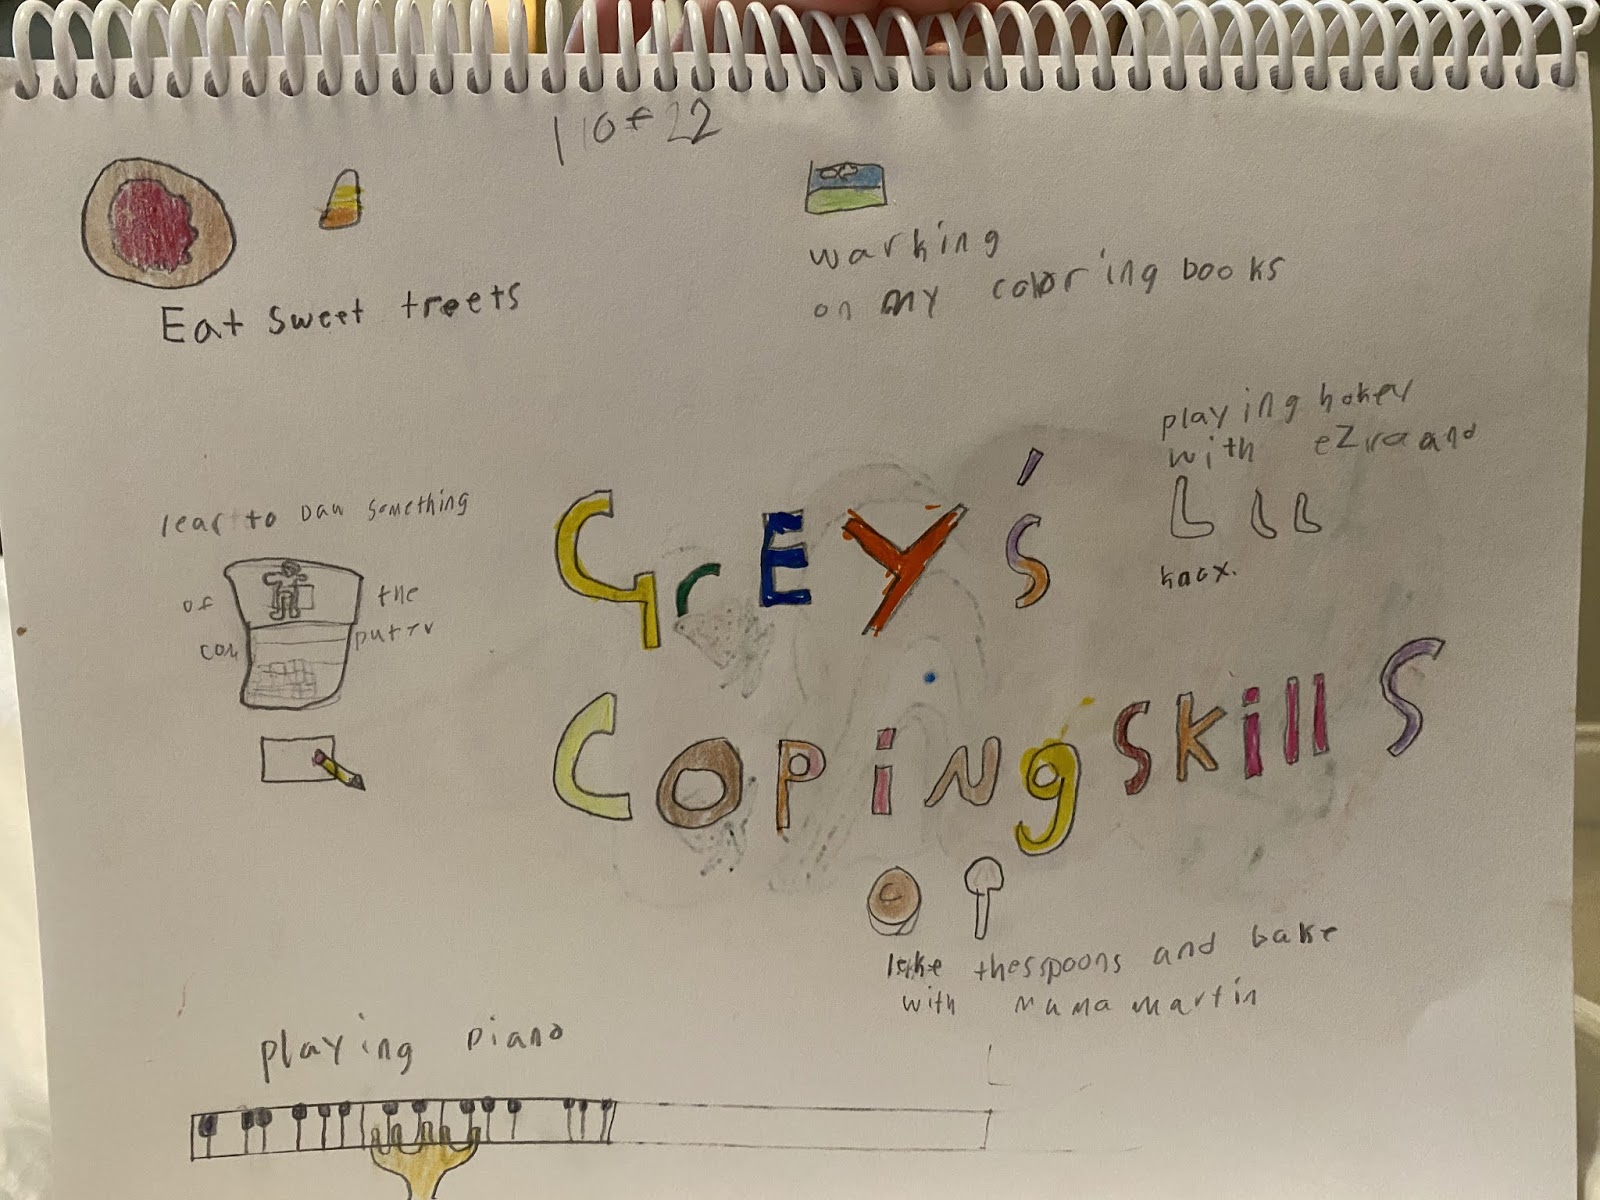 110f22
Eat sweet treets
warking
on my coloring books
playing hokey
with eZra and
knox.
lear to Dau something
of the
com puttr
GrEY's
Coping skills
like thesspoons and bake
with mama martin
playing piano